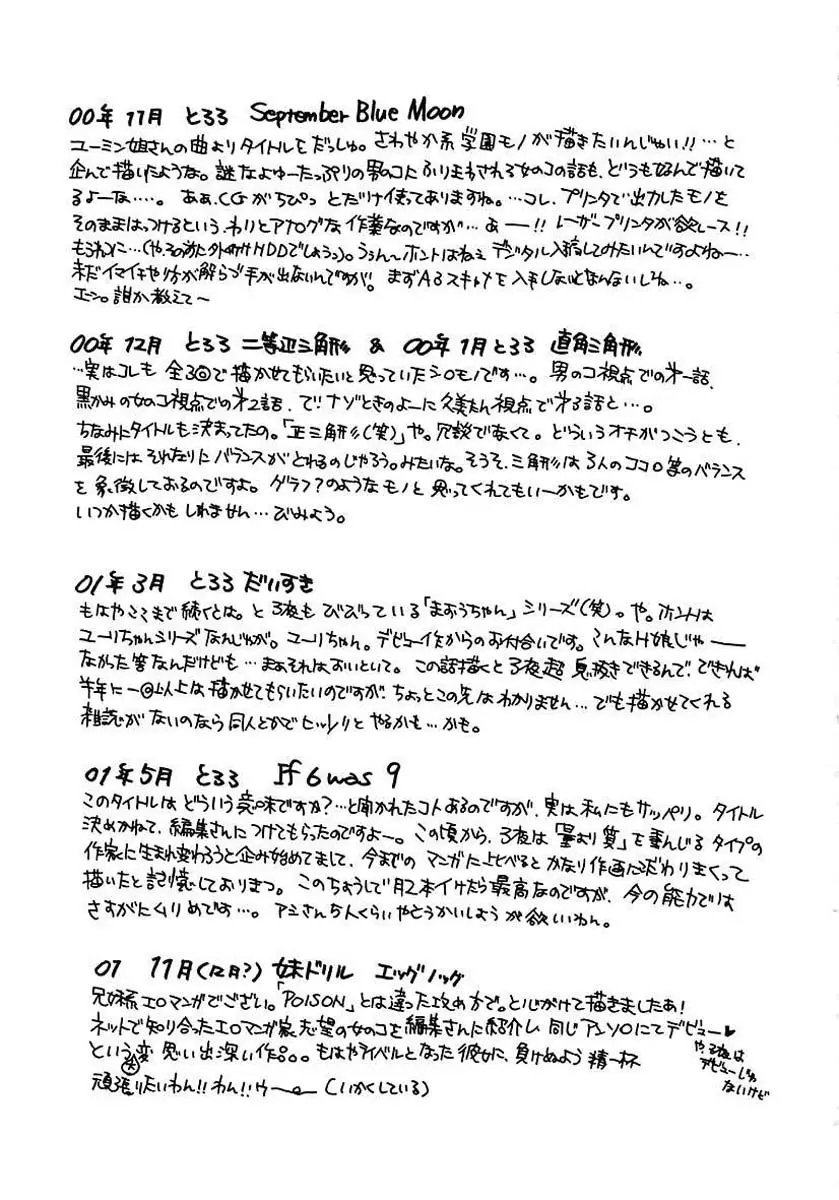 00年11月 とろろ September Blue Moon
ユーミン姐さんの曲よりタイトルをだっしゅ。さわやか系学園モノが描きたいんじゃい!!…と
企んで描いたような。謎なよゆーたっぷりの男のコにふりまわされる女のコの話も、どうもなんで描いて
るよーな…。あぁ、CGがちびっとだけ使ってありますね。…コレ、プリンタで出力したモノを
そのままはっつけるという、わりとアナログな作業なのですが…あー!!レーザープリンタが欲しース!!
もうれつに…(や、その前に外付けHDDでしょうっ)。うぅん〜ホントはねぇ デジタル入稿してみたいんですよねー…
未だイマイチやり方が解らず手が出ないんですが。まずA3スキャナを入手しないとなんないしね…。
エーン。誰か教えて〜
00年12月 とろろ 二等辺三角形 & 00年1月とろろ 直角三角形
…実はコレも 全3回で描かせてもらいたいと思っていたシロモノです…。男のコ視点での第一話、
黒かみの女のコ視点での第2話、で!!ナゾときのよーに久美たん視点で第3話と…。
ちなみにタイトルも決まってたの。「正三角形(笑)」や。冗談でなくて。どういうオチがつこうとも、
最後にはそれなりにバランスがとれるのじゃろう。みたいな。そうそ、三角形は3人のココロ等のバランス
を象徴しておるのですよ。グラフ?のようなモノと思ってくれてもいーかもです。
いつか描くかもしれません…びみょう。
01年3月 とろろ だいすき
もはやここまで続くとは。と子夜もびびっている「まおうちゃん」シリーズ(笑)。や。ホントは
ユーリちゃんシリーズなんじゃが。ユーリちゃん。デビュー作からのお付合いです。こんなH娘じゃー
なかった筈なんだけども…まぁそれはおいといて。この話描くと子夜超息抜きできるんで、できれば
半年に一回以上は描かせてもらいたいのですが、ちょっとこの先はわかりません…でも描かせてくれる
雑誌がないのなら同人とかでヒッソリとやるかも…かも。
01年5月 とろろ If 6 was 9
このタイトルはどういう意味ですか?…と聞かれたコトあるのですが、実は私にもサッパリ。タイトル
決めかねて、編集さんにつけてもらったのですよー。この頃から、子夜は「量より質」を重んじるタイプの
作家に生まれ変わろうと企み始めてまして、今までのマンガに比べるとかなり作画にこだわりまくって
描いたと記憶しておりまっ。このちょうしで月2本イけたら最高なのですが、今の能力では
さすがにムリめです…。アシさん5人くらいやとうかいしょうが欲しいわん。
01 11月(12月?) 妹ドリル エッグノッグ
兄妹系エロマンガでございい。「POISON」とは違った攻め方で。と心がけて描きましたぁ!
ネットで知り合ったエロマンガ家志望の女のコを編集さんに紹介し 同じアンソにてデビュー♥
という変 思い出深い作品。もはやライバルとなった彼女に、負けぬよう精一杯
大
頑張りたいわん!!わん!!ウー (いかくしている)
や、子夜は
デビューじゃ
ないけど